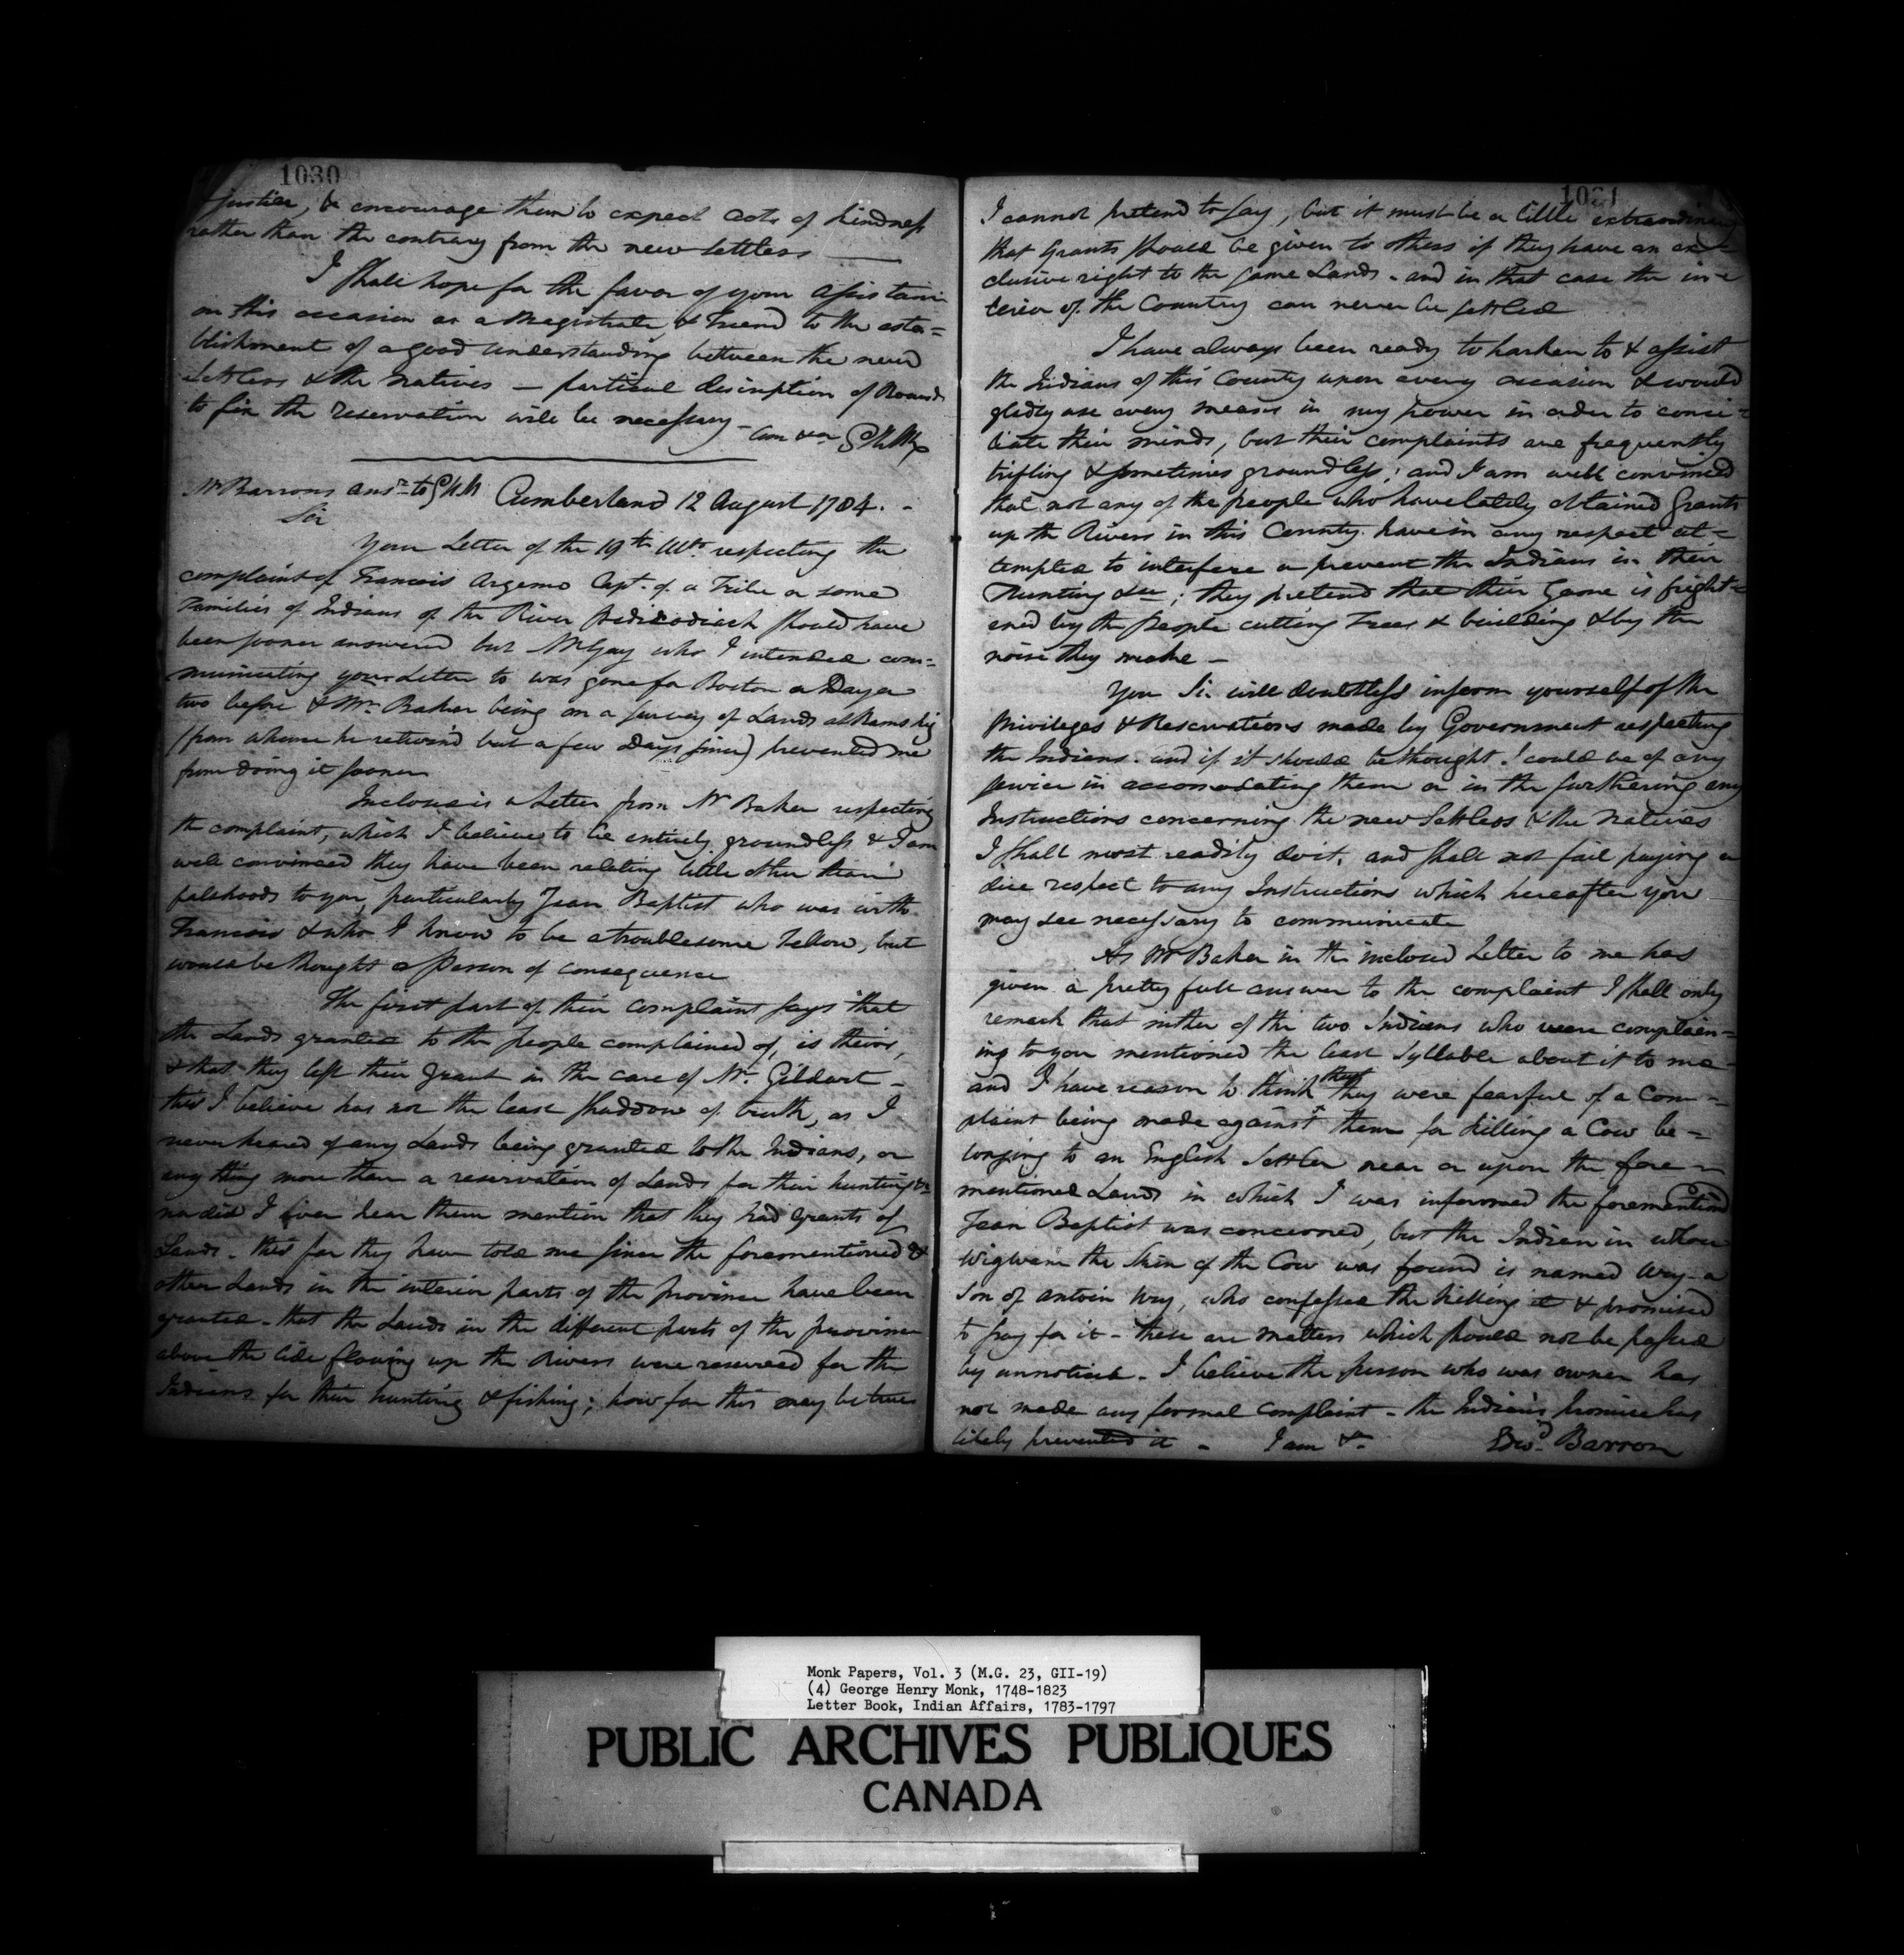 1030
justice, & encourage them to expect acts of kindness
rather than the contrary from the new settlers —
I shall hope for the favor of your assistance
on this occasion as a Magistrate & Friend to the esta=
blishment of a good understanding between the new
Settlers & the Natives — particul discription of Bounds
to fix the reservation will be necessary - am &ca GHM
Mr Barrons ansr. to GHM Cumberland 12 August 1784. -
Sir
Your Letter of the 19th Ulto. respecting the
complaint of Francois Argemo Capt. of a Tribe or some
Families of Indians of the River Pedicodiack should have
been sooner answered but Mr Gay who I intended com=
municating your Letter to was gone for Boston a Day or
two before & Mr. Baker being on a survey of Lands at Remshig
(from whence he return'd but a few Days since) prevented me
from doing it sooner
Inclosed is a Letter from Mr Baker respecting
the complaint, which I believe to be entirely groundless & I am
well convinced they have been relating little other than
falsehoods to you, particularly Jean Baptist who was with
Francois & who I know to be a troublesome Fellow, but
would be thought a person of consequence
The first part of their complaint says that
the Lands granted to the people complained of, is theirs,
& that they left their Grant in the care of Mr. Gildart -
this I believe has not the least shaddow of truth, as I
never heared of any Lands being granted to the Indians, or
any thing more than a reservation of Lands for their hunting &c
nor did I ever hear them mention that they had grants of
Lands - thus far they have told me since the forementioned &
other Lands in the interior parts of the province have been
granted - that the Lands in the different parts of the province
above the tide flowing up the Rivers were reserved for the
Indians for their hunting & fishing; how far this may be true
1031
I cannot pretend to say, but it must be a little extraordinary
that Grants should be given to others if they have an ex=
clusive right to the same Lands - and in that case the in=
terior of the Country can never be settled
I have always been ready to harken to & assist
the Indians of this County upon every occasion & would
gladly use every means in my power in order to conci=
liate their minds, but their complaints are frequently
trifling & sometimes groundless; and I am well convinced
that not any of the people who have lately obtained Grants
up the Rivers in this County have in any respect at=
tempted to interfere or prevent the Indians in their
Hunting &ca; they pretend that their Game is fright=
ened by the people cutting Trees & building & by the
noise they make -
You Sir will doubtless inform yourself of the
Privileges & Reservations made by Government respecting
the Indians. and if it should be thought I could be of any
service in accomodating them or in the furthering any
Instructions concerning the new Settlers & the Natives
I shall most readily do it, and shall not fail paying a
due respect to any Instructions which hereafter you
may see necessary to communicate
As Mr Baker in the inclosed Letter to me has
given a pretty full answer to the complaint I shall only
remark that neither of the two Indians who were complain=
ing to you mentioned the least Syllable about it to me -
and I have reason to think that they were fearful of a Com=
plaint being made against them for killing a Cow be=
longing to an English Settler near or upon the fore=
mentioned Lands in which I was informed the foremention'd
Jean Baptist was concerned, but the Indian in whose
Wigwam the Skin of the Cow was found is named Wuy - a
Son of Antoin Wuy, who confessed the killing it & promised
to pay for it - these are matters which should not be passed
by unnoticed - I believe the person who was owner has
not made any formal complaint - the Indian's promise has
likely prevented it - I am &c Edwd. Barron
Monk Papers, Vol. 3 (M.G. 23, GII-19)
(4) George Henry Monk, 1748-1823
Letter Book, Indian Affairs, 1783-1797
PUBLIC ARCHIVES PUBLIQUES
CANADA